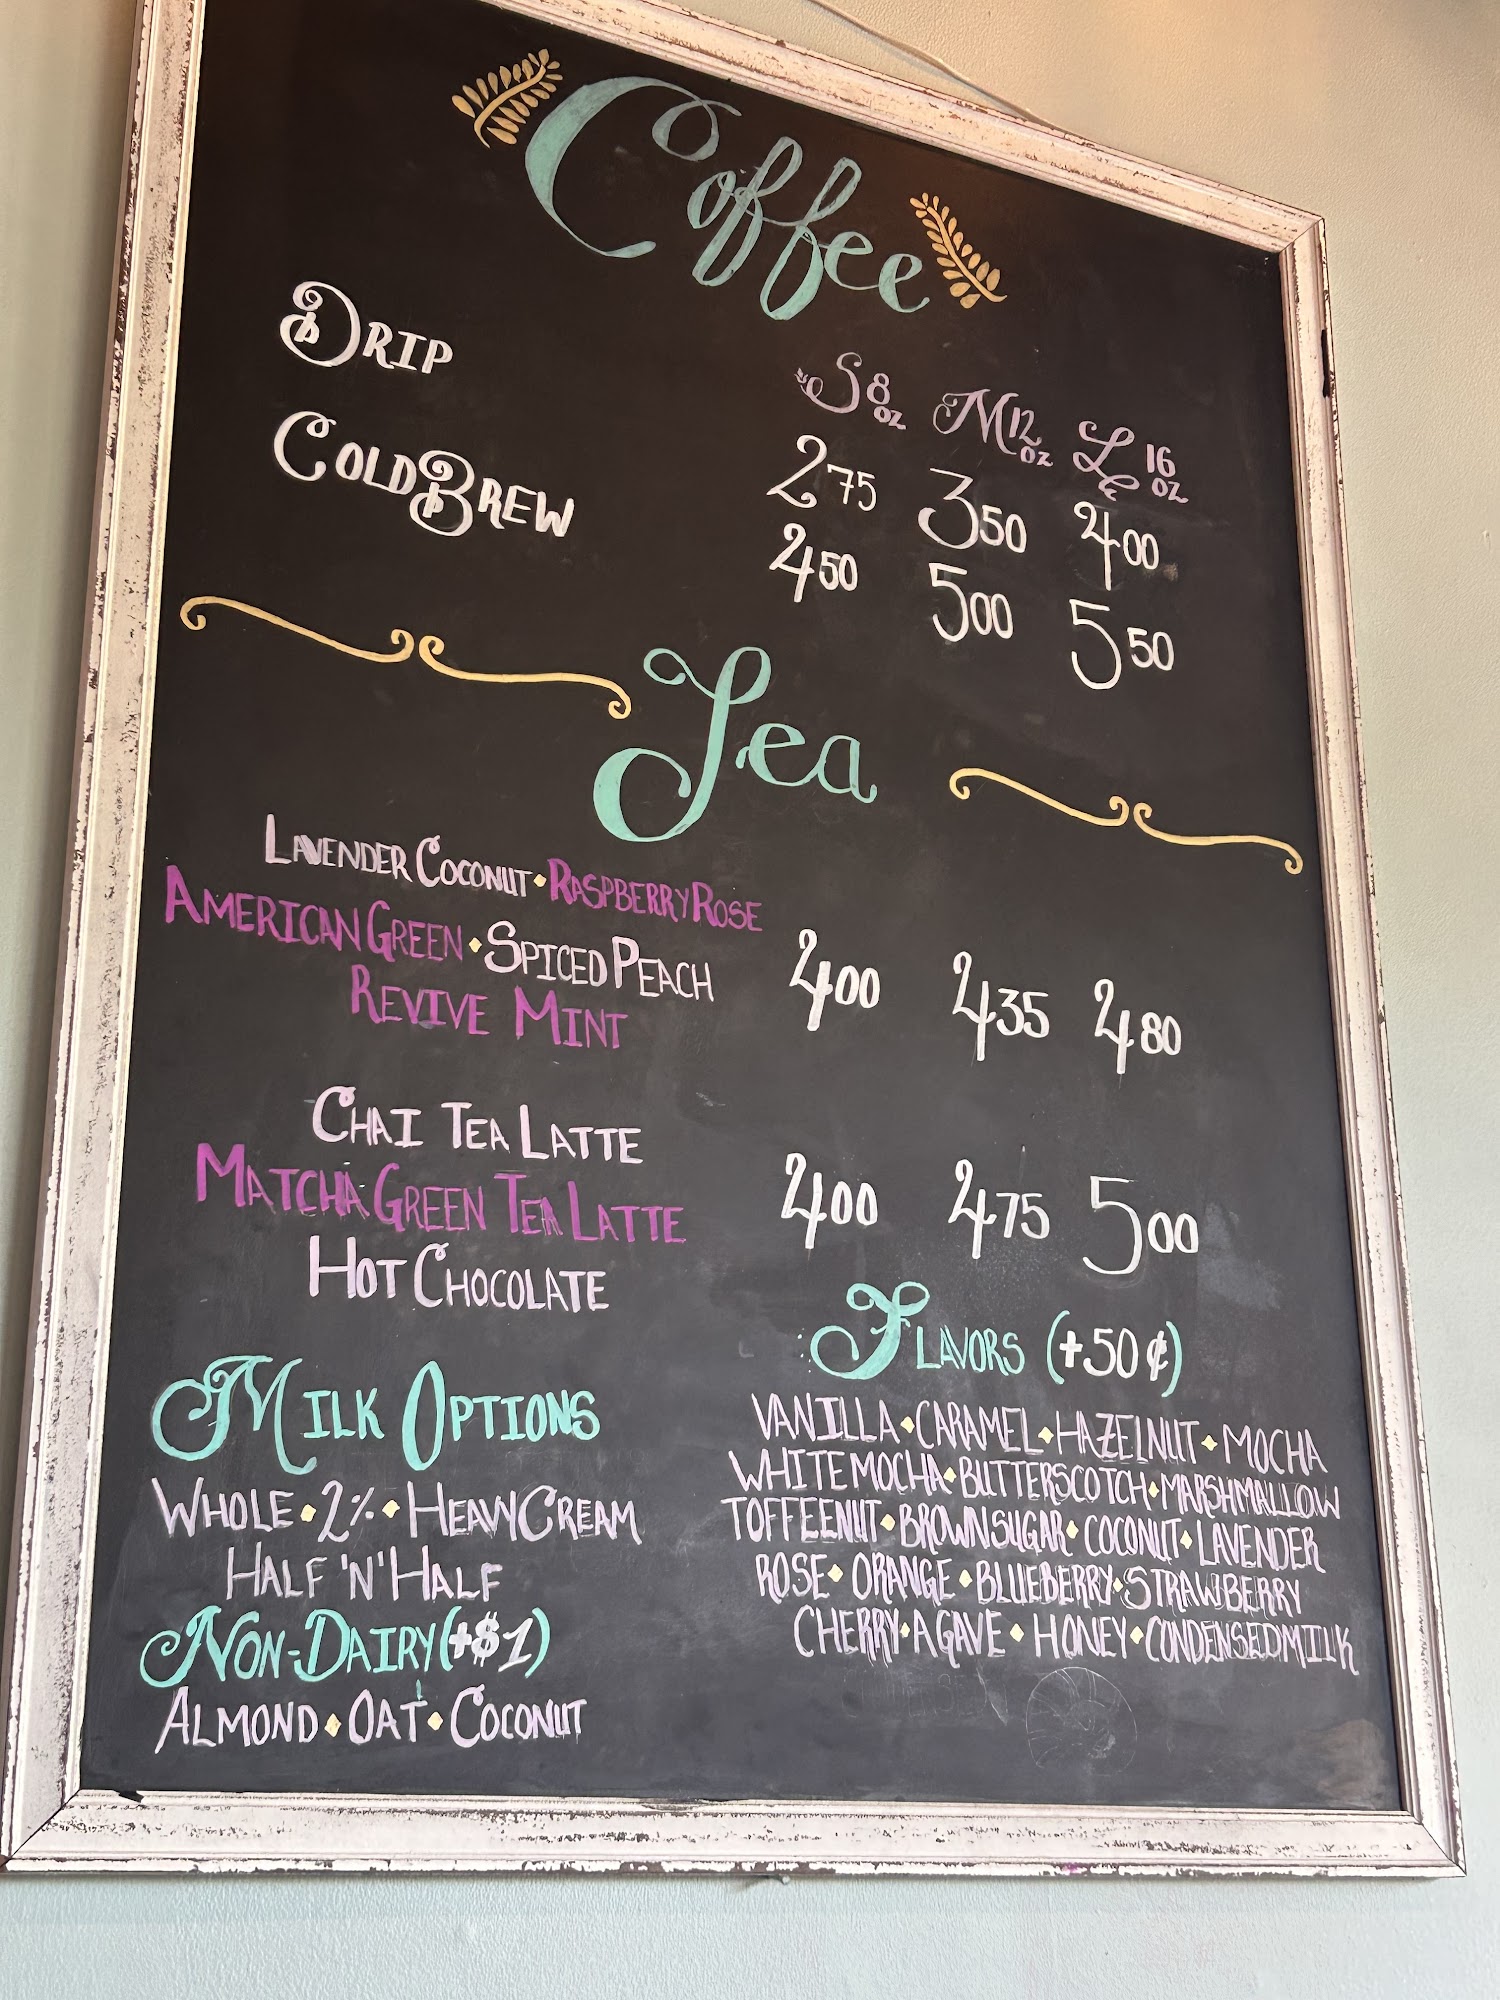 Coffee
S 8 oz M 12 oz L 16 oz
DRIP 2 75 3 50 4 00
COLD BREW 4 50 5 00 5 50
Tea
LAVENDER COCONUT • RASPBERRY ROSE
AMERICAN GREEN • SPICED PEACH 4 00 4 35 4 80
REVIVE MINT
CHAI TEA LATTE
MATCHA GREEN TEA LATTE 4 00 4 75 5 00
HOT CHOCOLATE
MILK OPTIONS
WHOLE • 2% • HEAVY CREAM
HALF 'N' HALF
NON-DAIRY (+$1)
ALMOND • OAT • COCONUT
FLAVORS (+50¢)
VANILLA • CARAMEL • HAZELNUT • MOCHA
WHITE MOCHA • BUTTERSCOTCH • MARSHMALLOW
TOFFEENUT • BROWN SUGAR • COCONUT • LAVENDER
ROSE • ORANGE • BLUEBERRY • STRAWBERRY
CHERRY • AGAVE • HONEY • CONDENSED MILK